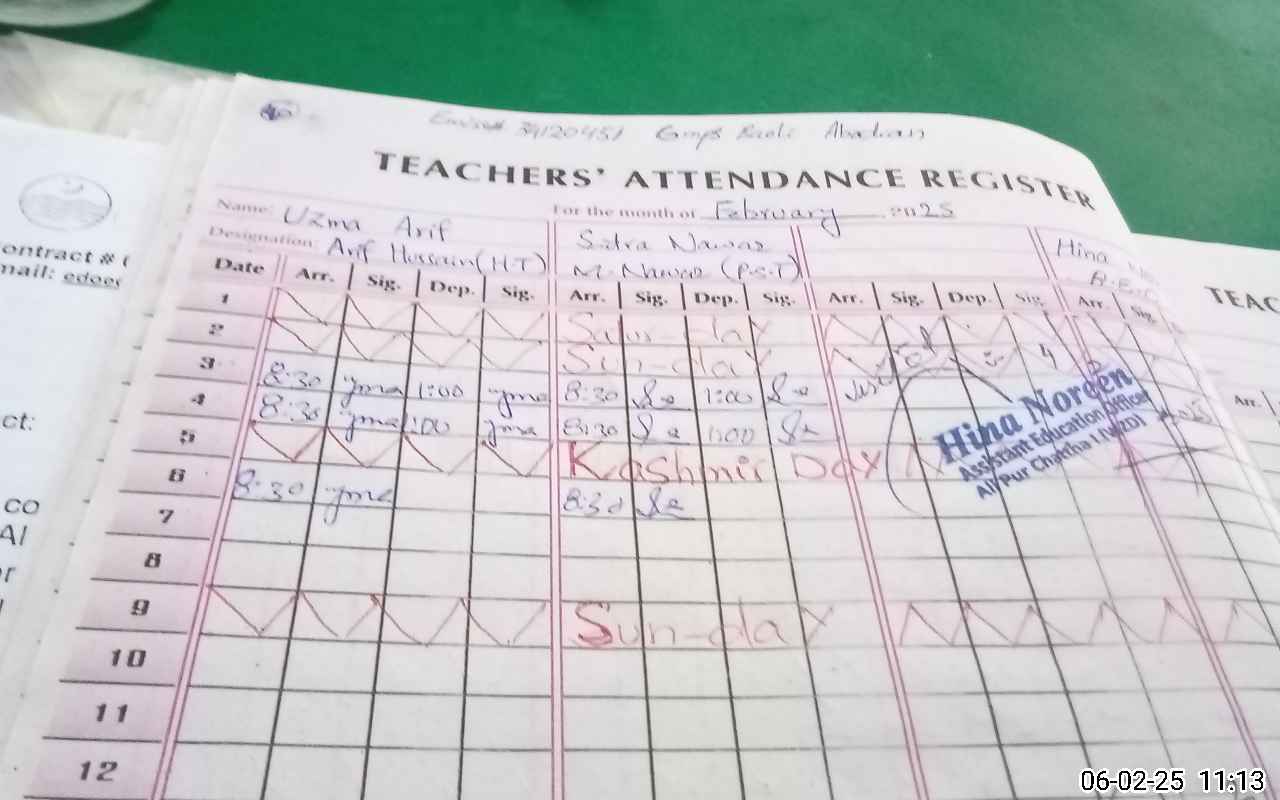 Emis# 34120451 Gmps Abadian
TEACHERS' ATTENDANCE REGISTER
Name: Uzma Arif
For the month of February 2025
Designation: Arif Hussain (H.T)
Sidra Nawaz
M. Nawaz (P.S.T)
Hina
Date Arr. Sig. Dep. Sig. Arr. Sig. Dep. Sig. Arr. Sig. Dep. Sig. Arr. Sig.
1 Satur day
2 Sun-day
3 8:30 yma 1:00 yma 8:30 1:00
4 8:30 yma 1:00 yma 8:30 1:00
5 Kashmir Day
6 8:30 yma 8:30
7
8
9 Sun-day
10
11
12
Hina Noreen
Assistant Education Officer
Ali Pur Chatha I (WZD)
ontract #
mail: edoed
ct:
co
AI
r
TEAC
Arr.
06-02-25 11:13